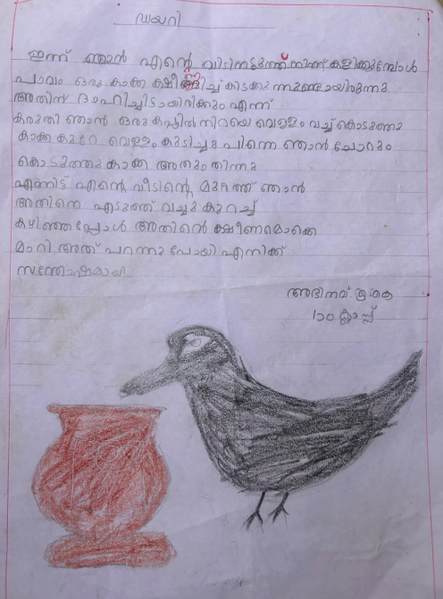 ഡയറി
ഇന്ന് ഞാൻ എന്റെ വീടിനുമുത്ത് നിന്ന് കളിക്കുമ്പോൾ
പാവം ഒരു കാക്ക ക്ഷീണിച്ച് കിടക്കുന്നുണ്ടായിരുന്നു
അതിന് ദാഹിച്ചിട്ടായിരിക്കും എന്ന്
കരുതി ഞാൻ ഒരു കപ്പിൽ നിറയെ വെള്ളം വച്ച് കൊടുത്തു
കാക്ക കുറേ വെള്ളം കുടിച്ചു പിന്നെ ഞാൻ ചോറും
കൊടുത്തു കാക്ക അതും തിന്നു
എന്നിട്ട് എന്റെ വീടിന്റെ മുറ്റത്ത് ഞാൻ
അതിനെ എടുത്ത് വച്ചു കുറച്ച്
കഴിഞ്ഞപ്പോൾ അതിന്റെ ക്ഷീണമൊക്കെ
മാറി അത് പറന്നു പോയി എനിക്ക്
സന്തോഷമായി
അഭിനവ്
1 ാം ക്ലാസ്സ്